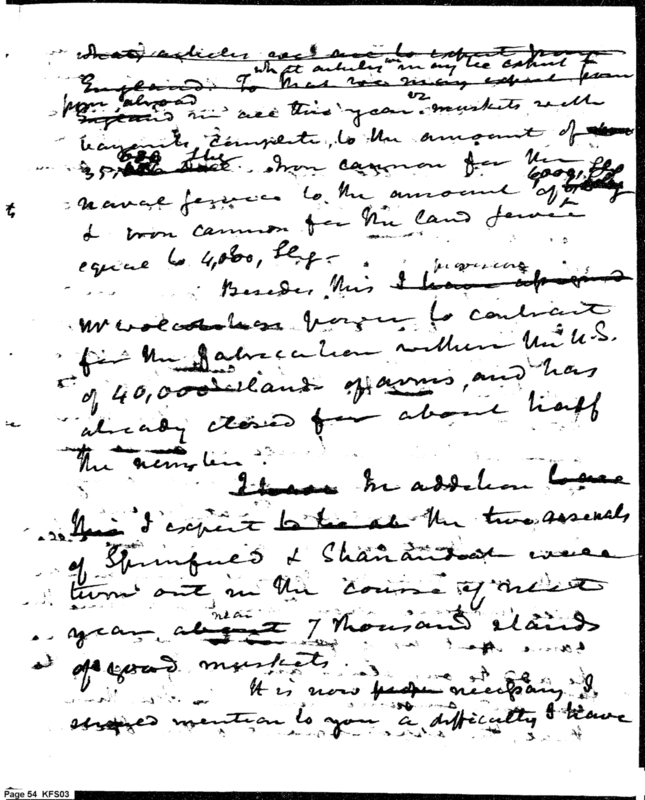 what articles we are to expect from
England. To that we may expect from
what articles we may be expect
from abroad
England in all this year viz muskets with
bayonets complete, to the amount of
35,000 Stg. Iron cannon for the
naval service to the amount of 6000, Stg
& iron cannon for the land service
equal to 4,000, Stg.
Besides this I have assigned
Mr Wolcott has power to contract
for the fabrication within the U.S.
of 40,000 stands of arms, and has
already closed for about half
the number.
I have In addition to are
this I expect to be at the two arsenals
of Springfield & Shanandoah will
turn out in the course of next
year about near 7 thousand stands
of good muskets.
It is now necessary I
should mention to you a difficulty I have
Page 54 KFS03